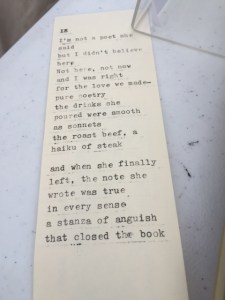 28
I'm not a poet she
said
but I didn't believe
her
Not here, not now
and I was right
for the love we made—
pure poetry
the drinks she
poured were smooth
as sonnets
the roast beef, a
haiku of steak
and when she finally
left, the note she
wrote was true
in every sense
a stanza of anguish
that closed the book